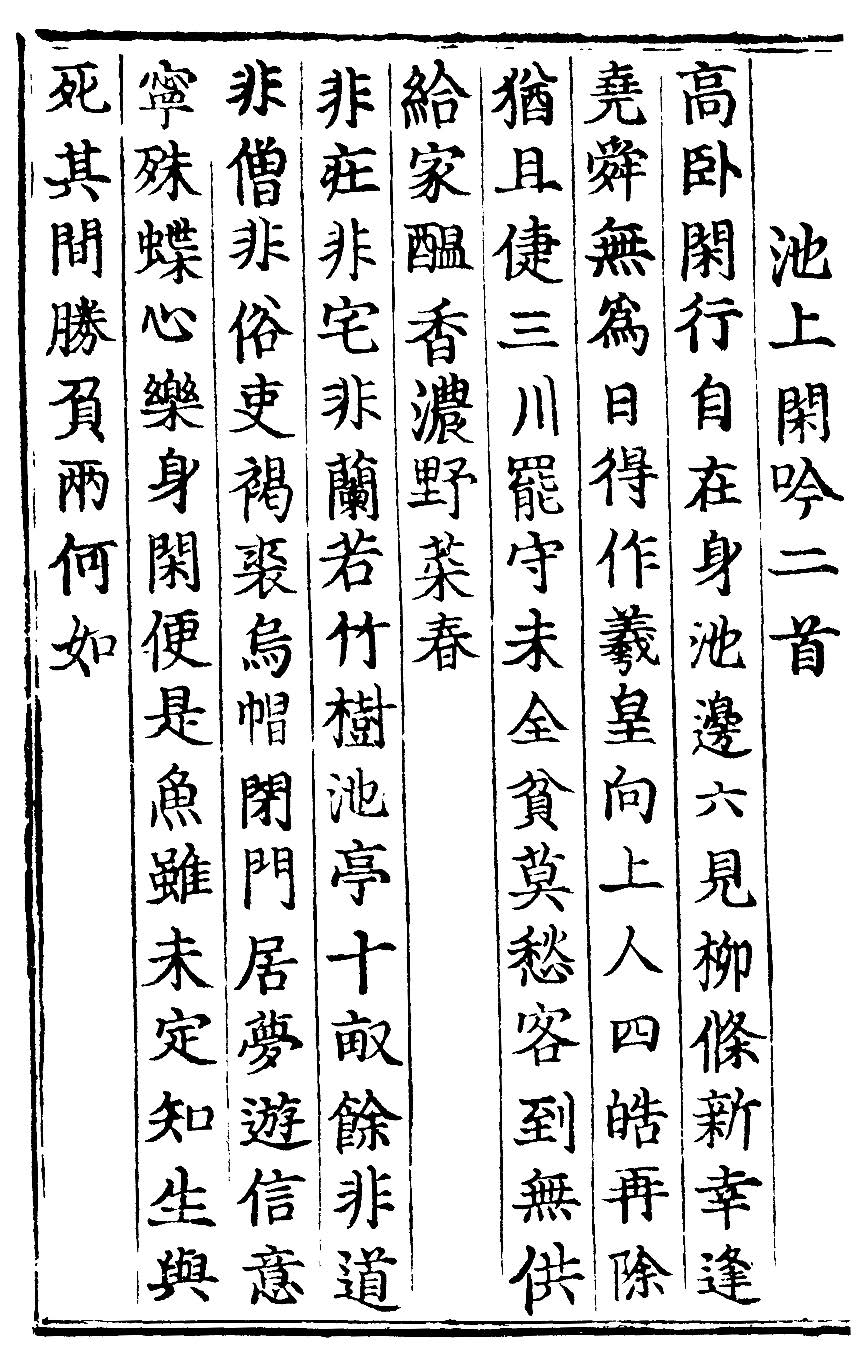 池上閑吟二首
高卧閑行自在身池邊六見柳條新幸逢
堯舜無爲日得作羲皇向上人四皓再除
猶且健三川罷守未全貧莫愁客到無供
給家醖香濃野菜春
非莊非宅非蘭若竹樹池亭十畝餘非道
非僧非俗吏褐裘烏帽閉門居夢遊信意
寧殊蝶心樂身閑便是魚雖未定知生與
死其間勝負兩何如